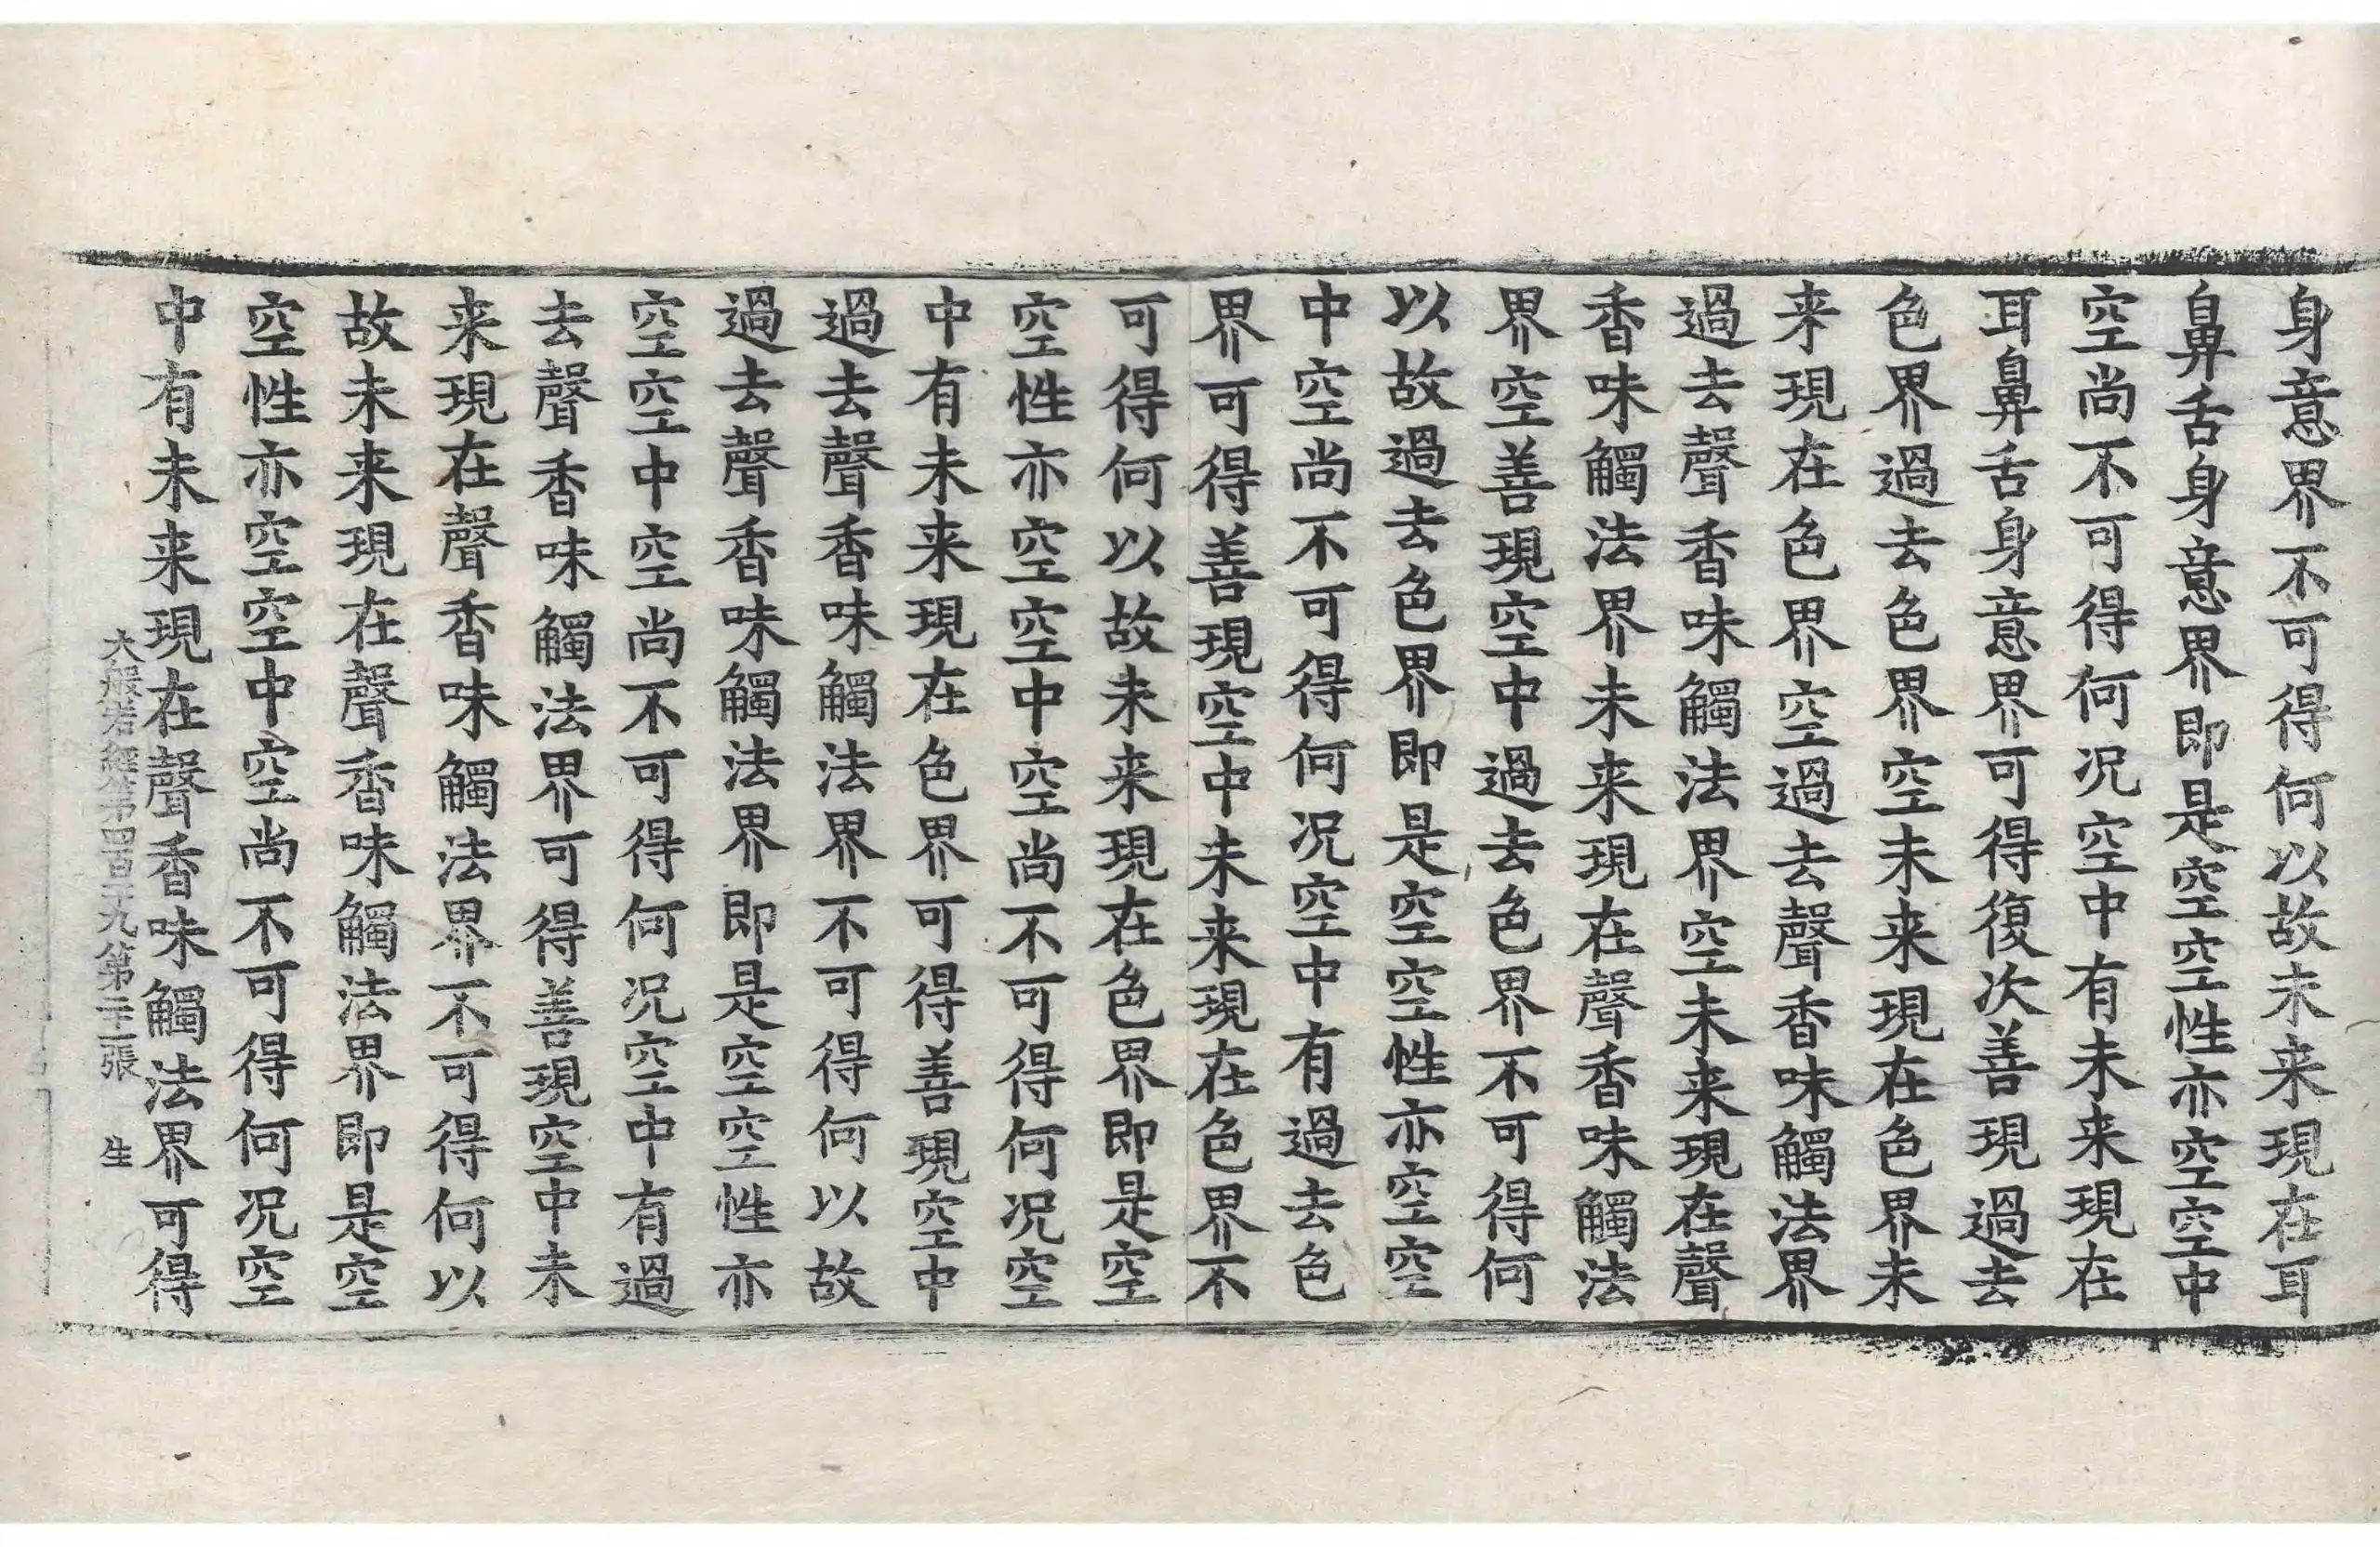 身意界不可得何以故未来現在耳
鼻舌身意界即是空空性亦空空中
空尚不可得何况空中有未来現在
耳鼻舌身意界可得復次善現過去
色界過去色界空未来現在色界未
来現在色界空過去聲香味觸法界
過去聲香味觸法界空未来現在聲
香味觸法界未来現在聲香味觸法
界空善現空中過去色界不可得何
以故過去色界即是空空性亦空空
中空尚不可得何况空中有過去色
界可得善現空中未来現在色界不
可得何以故未来現在色界即是空
空性亦空空中空尚不可得何况空
中有未来現在色界可得善現空中
過去聲香味觸法界不可得何以故
過去聲香味觸法界即是空空性亦
空空中空尚不可得何况空中有過
去聲香味觸法界可得善現空中未
来現在聲香味觸法界不可得何以
故未来現在聲香味觸法界即是空
空性亦空空中空尚不可得何况空
中有未来現在聲香味觸法界可得
大般若經第四百九第二張 生